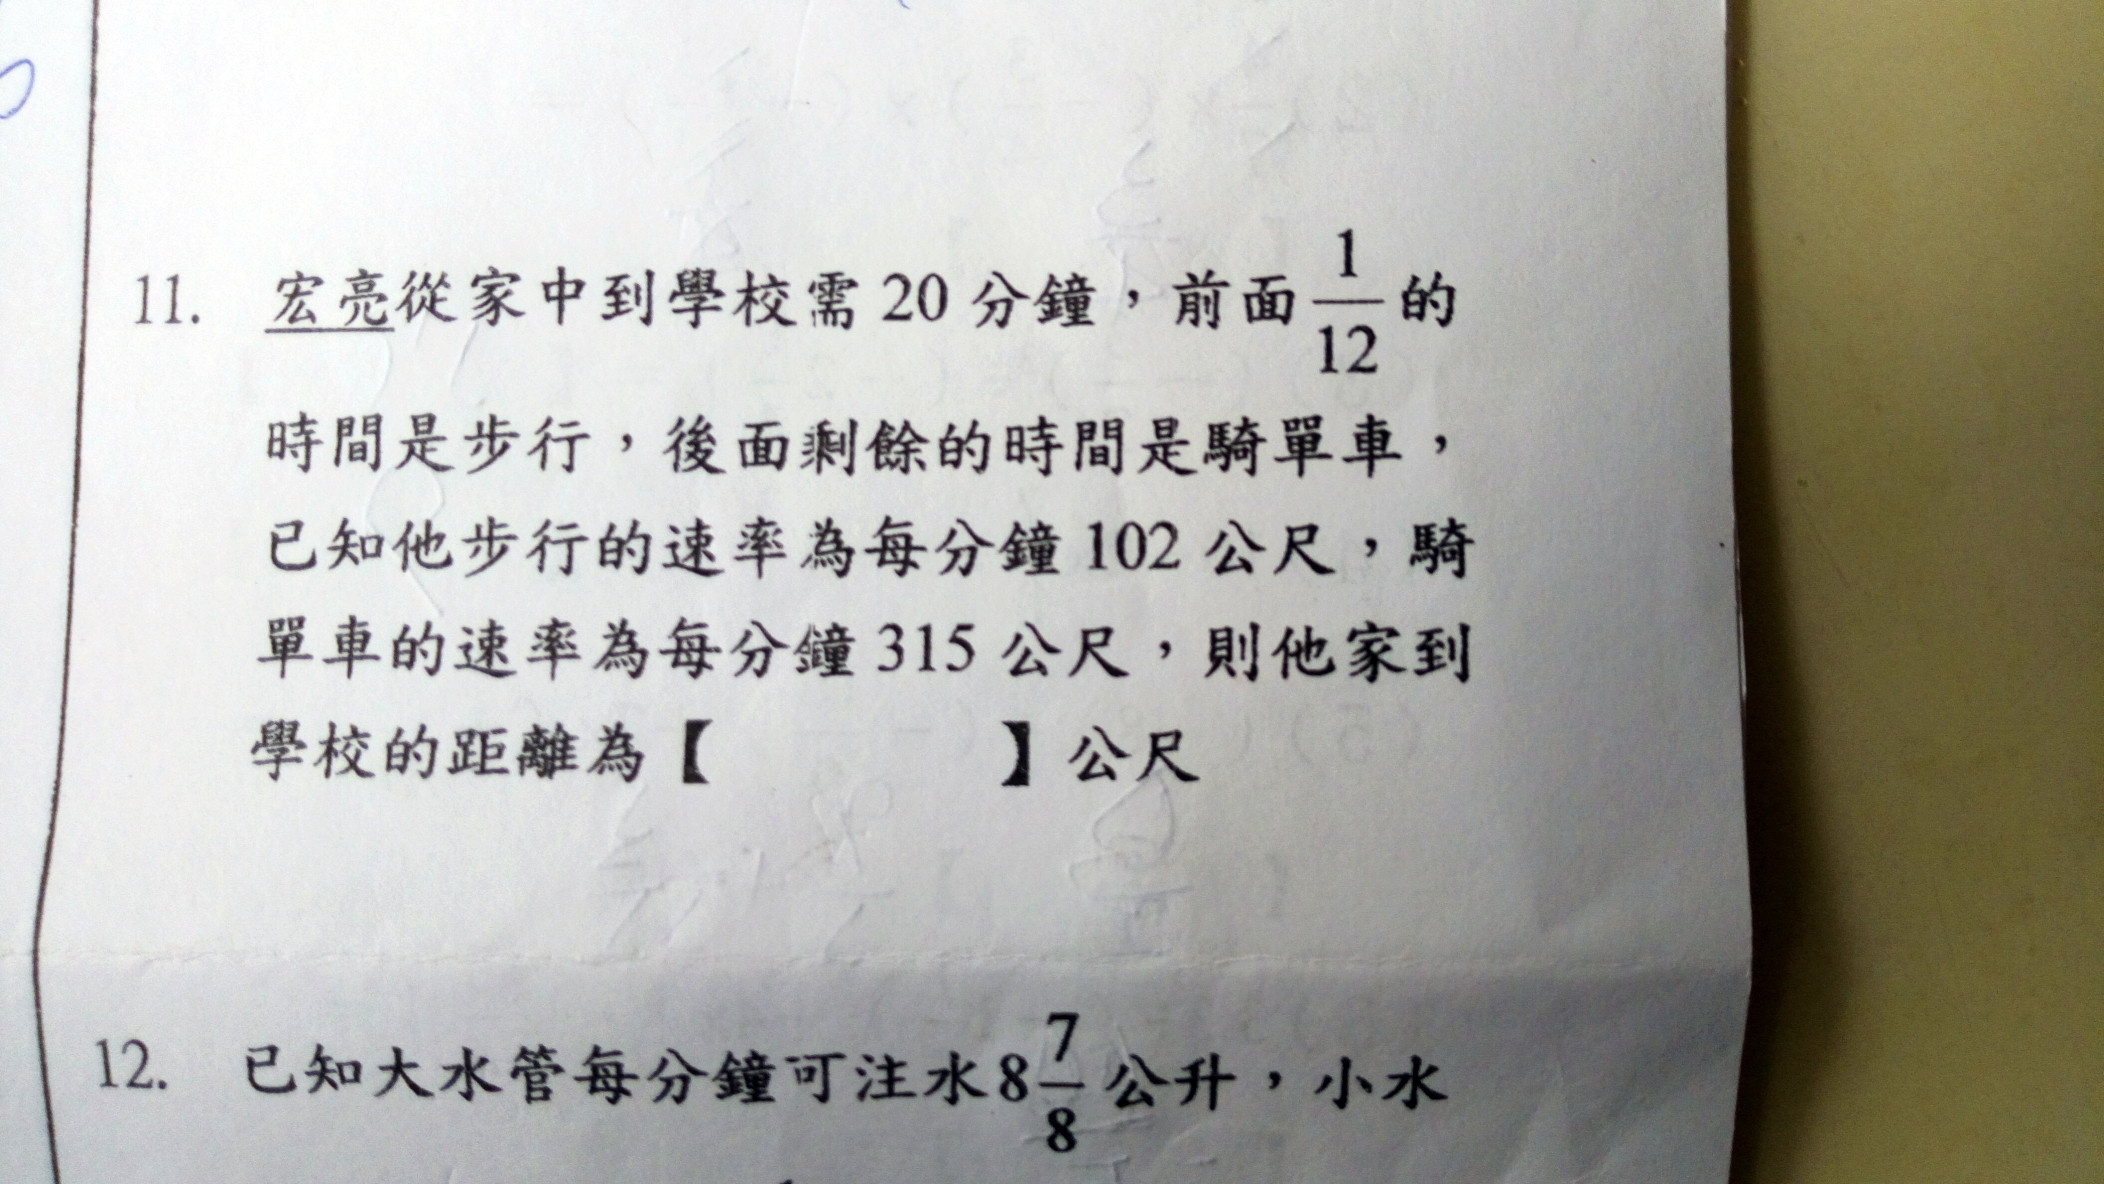 11. 宏亮從家中到學校需 20 分鐘，前面 1/12 的
時間是步行，後面剩餘的時間是騎單車，
已知他步行的速率為每分鐘 102 公尺，騎
單車的速率為每分鐘 315 公尺，則他家到
學校的距離為【 】公尺
12. 已知大水管每分鐘可注水 8 7/8 公升，小水